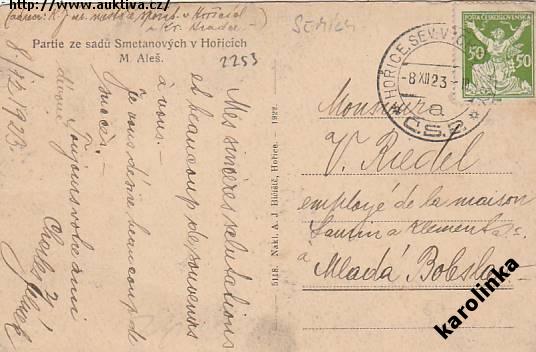 http://www.auktiva.cz/
(adresa: K. J. ur. v Hořicích
v Kr. Hradec —)
Partie ze sadů Smetanových v Hořicích
M. Aleš.
2253
8/12 1923.
Mes sincères salutations
et beaucoup de souvenirs
à vous. —
Je vous désire beaucoup de
succès. —
Toujours votre ami
dévoué
Charles J.
5118. Nakl. A. J. Hořice. 1922.
HOŘICE
-8 XII 23-
* Č.S.P. *
POŠTA ČESKOSLOVENSKÁ
50 50
Monsieur
V. Riedel
employé de la maison
Laurin a Klement a. s.
à Mladá Boleslav
karolinka